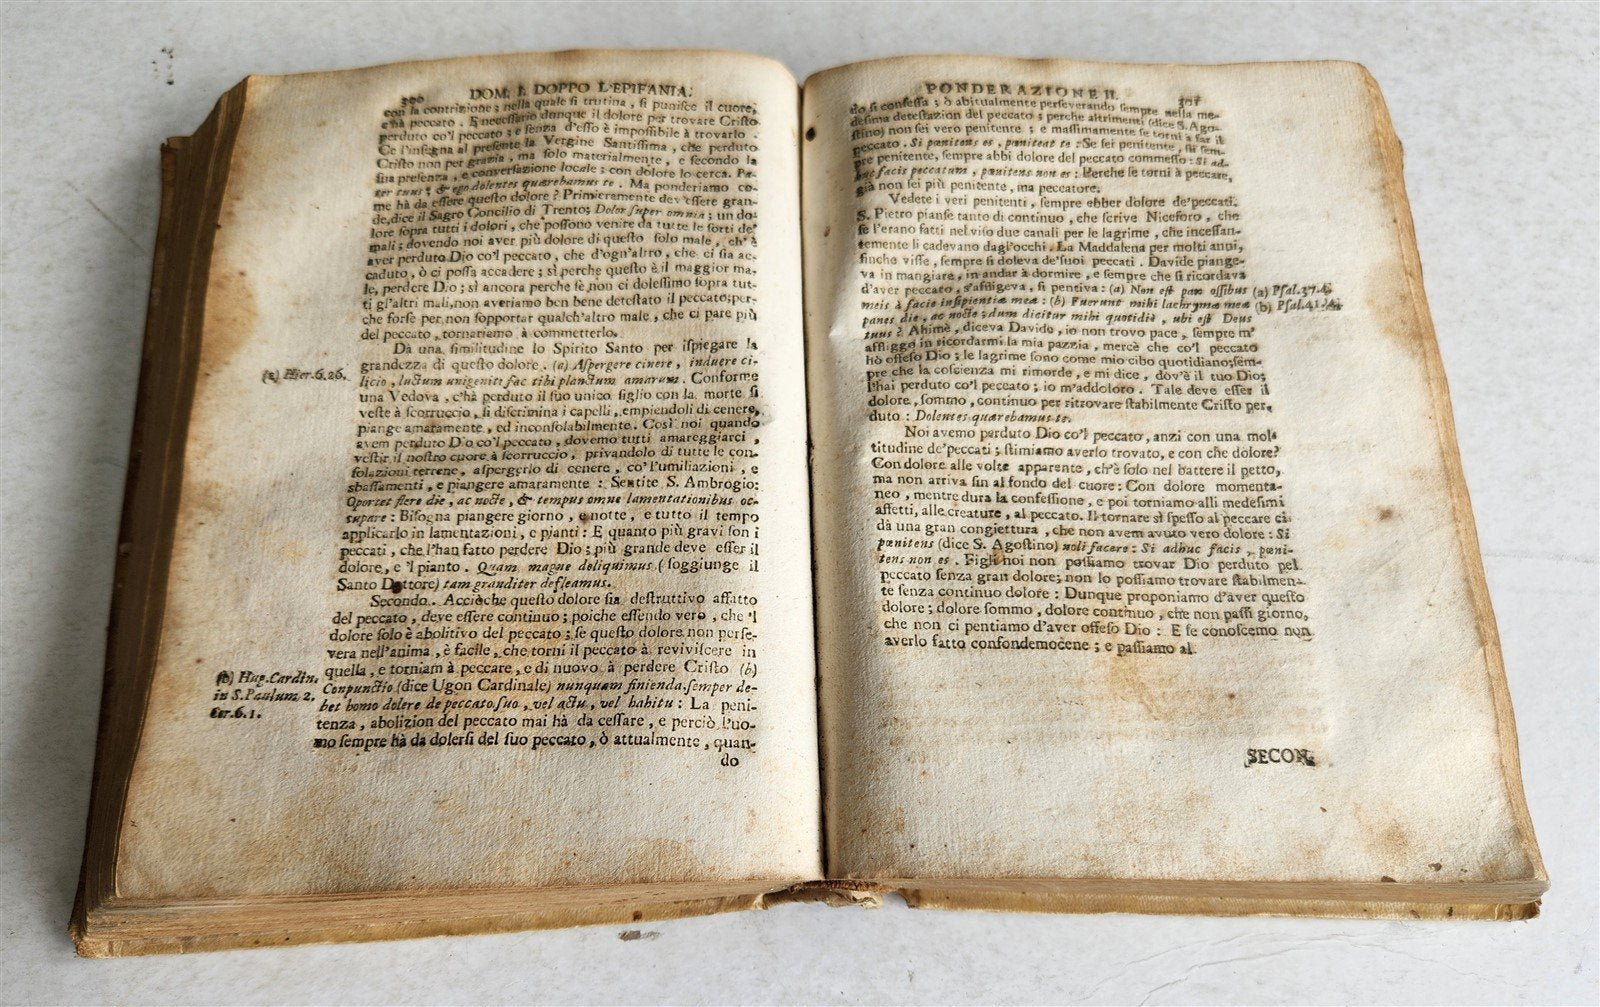 300 DOM. I. DOPPO L'EPIFANIA.
con la contrizione; nella quale si trutina, si punisce il cuore,
c'hà peccato. E necessario dunque il dolore per trovare Cristo
perduto co'l peccato; e senza d'esso è impossibile à trovarlo.
Ce l'insegna al presente la Vergine Santissima, che perduto
Cristo non per grazia, ma solo materialmente, e secondo la
sua presenza, e conversazione locale; con dolore lo cerca. Pa-
ter tuus, & ego dolentes quærebamus te. Ma ponderiamo co-
me hà da essere questo dolore? Primieramente dev'essere gran-
de, dice il Sagro Concilio di Trento; Dolor super omnia; un do-
lore sopra tutti i dolori, che possono venire da tutte le sorti de'
mali; dovendo noi aver più dolore di questo solo male, ch'è
aver perduto Dio co'l peccato, che d'ogn'altro, che ci sia ac-
caduto, ò ci possa accadere; sì perche questo è il maggior ma-
le, perdere Dio; sì ancora perche sè non ci dolessimo sopra tut-
ti gl'altri mali, non averiamo ben bene detestato il peccato; per-
che forse per non sopportar qualch'altro male, che ci pare più
del peccato, tornariamo à commetterlo.
Dà una similitudine lo Spirito Santo per ispiegare la
grandezza di questo dolore. (a) Aspergere cinere, induere ci-
(a) Hier. 6.26.
licio, luctum unigeniti fac tibi planctum amarum. Conforme
una Vedova, c'hà perduto il suo unico figlio con la morte si
veste à scorruccio, si discrimina i capelli, empiendoli di cenere,
piange amaramente, ed inconsolabilmente. Così noi quando
avem perduto Dio co'l peccato, dovemo tutti amareggiarci,
vestir il nostro cuore à scorruccio, privandolo di tutte le con-
solazioni terrene, aspergerlo di cenere, co' l'umiliazioni, e
sbassamenti, e piangere amaramente: Sentite S. Ambrogio:
Oportet flere die, ac nocte, & tempus omne lamentationibus oc-
cupare: Bisogna piangere giorno, e notte, e tutto il tempo
applicarlo in lamentazioni, e pianti: E quanto più gravi son i
peccati, che l'han fatto perdere Dio; più grande deve esser il
dolore, e 'l pianto. Quam magne deliquimus (soggiunge il
Santo Dottore) tam granditer defleamus.
Secondo. Acciòche questo dolore sia destruttivo affatto
del peccato, deve essere continuo; poiche essendo vero, che 'l
dolore solo è abolitivo del peccato; se questo dolore non perse-
vera nell'anima, è facile, che torni il peccato à reviviscere in
quella, e torniam à peccare, e di nuovo à perdere Cristo (b)
(b) Hug. Cardin.
in S. Paulum 2.
Cor. 6.1.
Conpunctio (dice Ugon Cardinale) nunquam finienda. semper de-
bet homo dolere de peccato suo, vel actu, vel habitu: La peni-
tenza, abolizion del peccato mai hà da cessare, e perciò l'uo-
mo sempre hà da dolersi del suo peccato, ò attualmente, quan-
do
PONDERAZIONE II. 301
do si confessa; ò abitualmente perseverando sempre nella me-
desima detestazion del peccato; perche altrimenti (dice S. Ago-
stino) non sei vero penitente; e massimamente se torni à far il
peccato. Si pœnitens es, pœniteat te: Se sei penitente, sii sem-
pre penitente, sempre abbi dolore del peccato commesso: Si ad-
huc facis peccatum, pœnitens non es: Perche se torni à peccare,
già non sei più penitente, ma peccatore.
Vedete i veri penitenti, sempre ebber dolore de' peccati.
S. Pietro pianse tanto di continuo, che scrive Niceforo, che
se l'erano fatti nel viso due canali per le lagrime, che incessan-
temente li cadevano dagl'occhi. La Maddalena per molti anni,
finche visse, sempre si doleva de' suoi peccati. Davide piange-
va in mangiare, in andar à dormire, e sempre che si ricordava
d'aver peccato, s'affligeva, si pentiva: (a) Non est pax ossibus
(a) Psal. 37.4.
meis à facie insipientiæ meæ: (b) Fuerunt mihi lachrymæ meæ
(b) Psal. 41.4.
panes die, ac nocte; dum dicitur mihi quotidiè, ubi est Deus
tuus? Ahimè, diceva Davide, io non trovo pace, sempre m'
affliggo in ricordarmi la mia pazzia, mercè che co'l peccato
hò offeso Dio; le lagrime sono come mio cibo quotidiano; sem-
pre che la coscienza mi rimorde, e mi dice, dov'è il tuo Dio;
l'hai perduto co'l peccato; io m'addoloro. Tale deve esser il
dolore, sommo, continuo per ritrovare stabilmente Cristo per-
duto: Dolentes quærebamus te.
Noi avemo perduto Dio co'l peccato, anzi con una mol-
titudine de' peccati; stimiamo averlo trovato, e con che dolore?
Con dolore alle volte apparente, ch'è solo nel battere il petto,
ma non arriva sin al fondo del cuore: Con dolore momenta-
neo, mentre dura la confessione, e poi torniamo alli medesimi
affetti, alle creature, al peccato. Il tornare sì spesso al peccare ci
dà una gran congiettura, che non avem avuto vero dolore: Si
pœnitens (dice S. Agostino) noli facere: Si adhuc facis, pœni-
tens non es. Figli noi non possiamo trovar Dio perduto pel
peccato senza gran dolore; non lo possiamo trovare stabilmen-
te senza continuo dolore: Dunque proponiamo d'aver questo
dolore; dolore sommo, dolore continuo, che non passi giorno,
che non ci pentiamo d'aver offeso Dio: E se conoscemo non
averlo fatto confondemocene; e passiamo al
SECON-